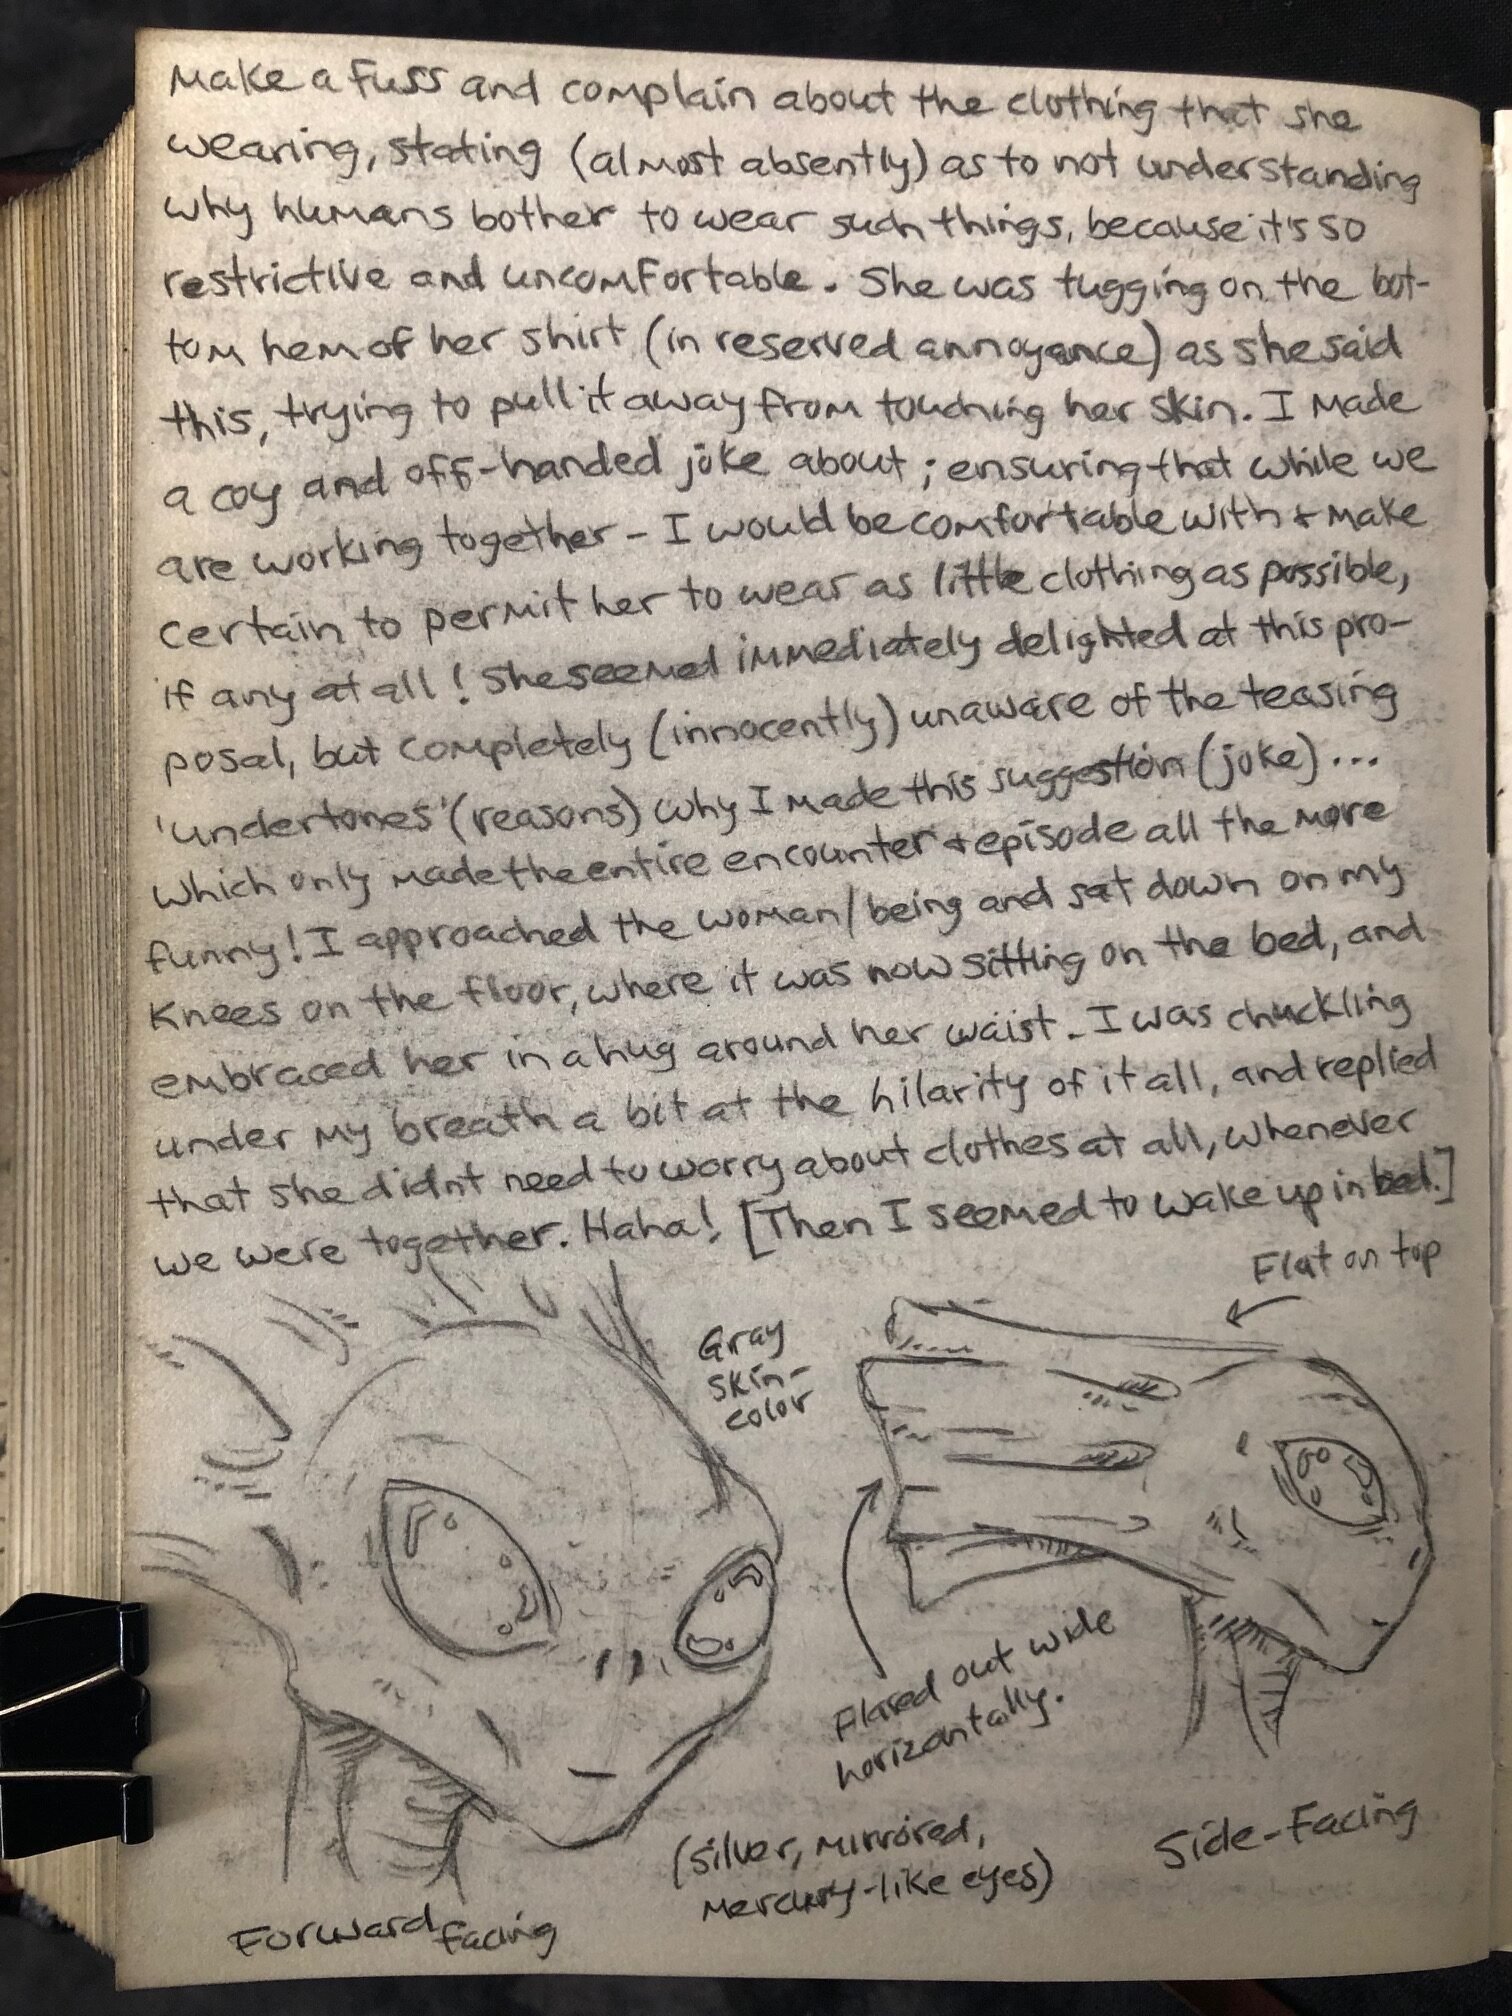 Make a fuss and complain about the clothing that she
wearing, stating (almost absently) as to not understanding
why humans bother to wear such things, because it's so
restrictive and uncomfortable. She was tugging on the bot-
tom hem of her shirt (in reserved annoyance) as she said
this, trying to pull it away from touching her skin. I made
a coy and off-handed joke about; ensuring that while we
are working together - I would be comfortable with + make
certain to permit her to wear as little clothing as possible,
if any at all! She seemed immediately delighted at this pro-
posal, but completely (innocently) unaware of the teasing
'undertones' (reasons) why I made this suggestion (joke)...
which only made the entire encounter + episode all the more
funny! I approached the woman/being and sat down on my
knees on the floor, where it was now sitting on the bed, and
embraced her in a hug around her waist. I was chuckling
under my breath a bit at the hilarity of it all, and replied
that she didnt need to worry about clothes at all, whenever
we were together. Haha! [Then I seemed to wake up in bed.]
Flat on top
Gray
skin-
color
Flared out wide
horizontally.
(silver, mirrored,
mercury-like eyes)
Side-Facing
Forward Facing